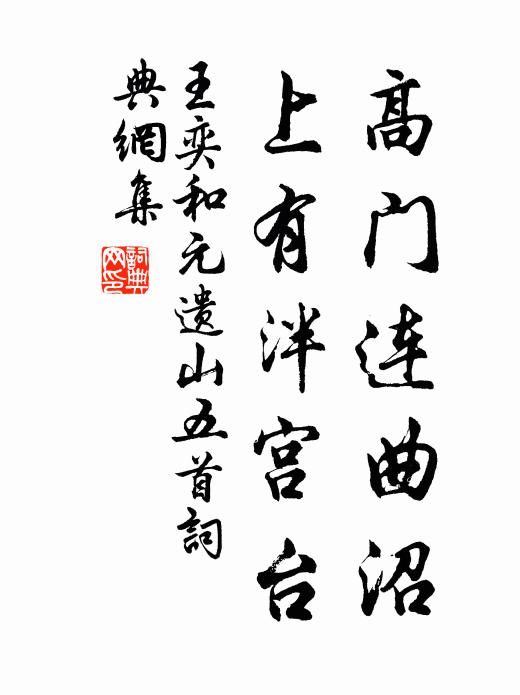 高门连曲沼
上有泮宫台
王奕和元遗山五首詞
典網集
詞典
网印